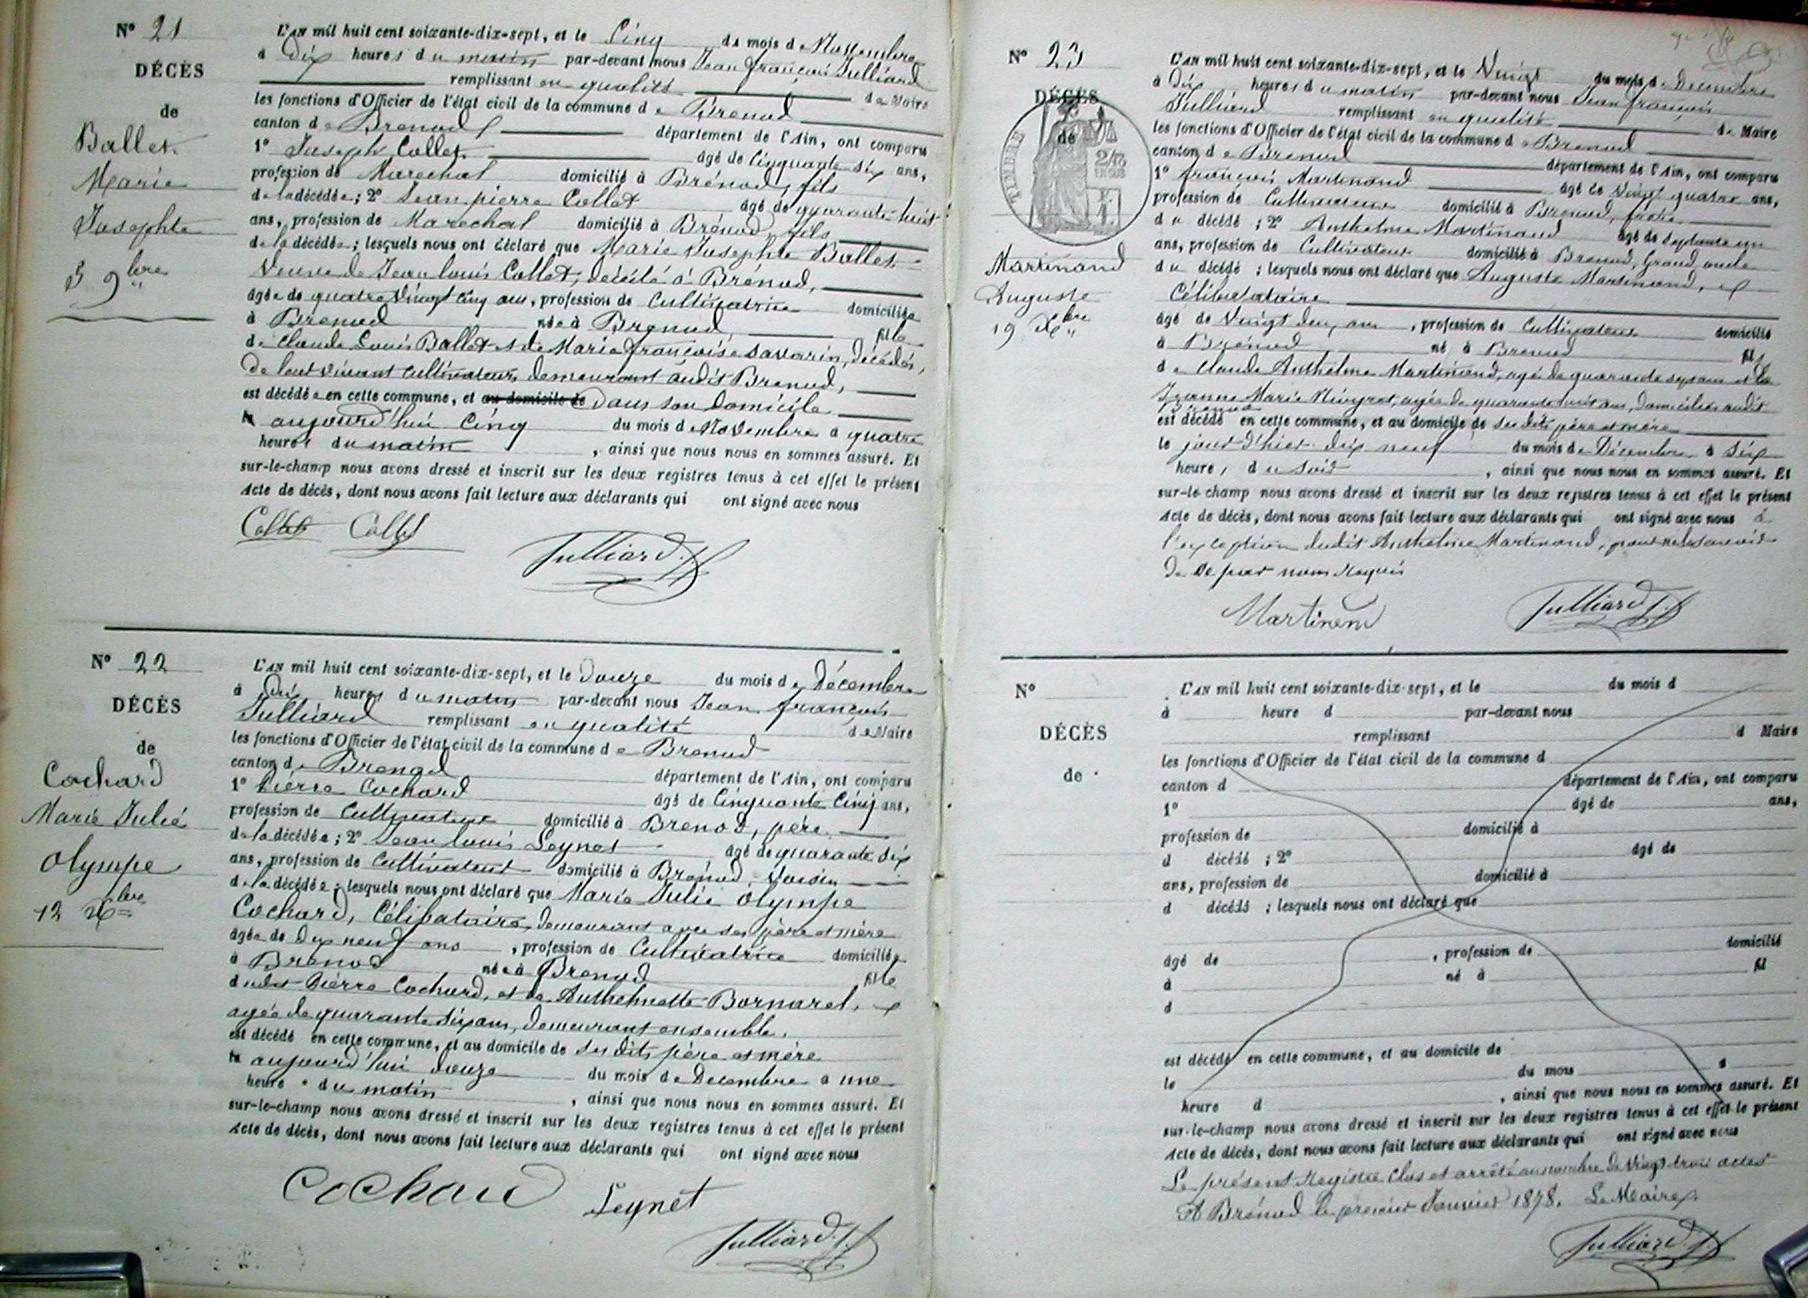 N° 21
DÉCÈS
de
Ballet
Marie
Josephte
5 9bre
L'AN mil huit cent soixante-dix-sept, et le Cinq du mois de Novembre
à Dix heures du matin par-devant nous Jean françois Julliard
remplissant en qualité de Maire
les fonctions d'Officier de l'état civil de la commune de Brénod
canton de Brenod département de l'Ain, ont comparu
1° Joseph Collet âgé de Cinquante six ans,
profession de Marechal domicilié à Brénod, fils
de la décédée; 2° Jean pierre Collet âgé de quarante huit
ans, profession de Marechal domicilié à Brénod, fils
de la décédée; lesquels nous ont déclaré que Marie Josephte Ballet
Veuve de Jean louis Collet, décédé à Brénod,
âgée de quatre vingt cinq ans, profession de Cultivatrice domiciliée
à Brenod née à Brenod fille
de Claude Louis Ballet et de Marie françoise Savarin, décédés,
de leur vivant cultivateurs, demeurant audit Brenod,
est décédée en cette commune, et au domicile de Dans son domicile
aujourd'hui Cinq du mois de Novembre à quatre
heures du matin, ainsi que nous nous en sommes assuré. Et
sur-le-champ nous avons dressé et inscrit sur les deux registres tenus à cet effet le présent
Acte de décès, dont nous avons fait lecture aux déclarants qui ont signé avec nous
Collet Collet
Julliard
N° 22
DÉCÈS
de
Cochard
Marie Julie
Olympe
12 Xbre
L'AN mil huit cent soixante-dix-sept, et le Douze du mois de Décembre
à Dix heures du matin par-devant nous Jean françois
Julliard remplissant en qualité de Maire
les fonctions d'Officier de l'état civil de la commune de Brenod
canton de Brenod département de l'Ain, ont comparu
1° Pierre Cochard âgé de Cinquante Cinq ans,
profession de Cultivateur domicilié à Brenod, père
de la décédée; 2° Jean louis Leynet âgé de quarante six
ans, profession de Cultivateur domicilié à Brénod, voisin
de la décédée; lesquels nous ont déclaré que Marie Julie Olympe
Cochard, Célibataire, demeurant avec ses père et mère
âgée de Dix neuf ans, profession de Cultivatrice domiciliée
à Brenod née à Brenod fille
dudit Pierre Cochard, et de Anthelmette Bornarel,
agée de quarante six ans, demeurant ensemble.
est décédé en cette commune, et au domicile de ses dits père et mère
aujourd'hui douze du mois de Decembre à une
heure du matin, ainsi que nous nous en sommes assuré. Et
sur-le-champ nous avons dressé et inscrit sur les deux registres tenus à cet effet le présent
Acte de décès, dont nous avons fait lecture aux déclarants qui ont signé avec nous
Cochard Leynet
Julliard
N° 23
DÉCÈS
de
TIMBRE
Martinand
Auguste
19 Xbre
L'AN mil huit cent soixante-dix-sept, et le Vingt du mois de Decembre
à Dix heures du matin par-devant nous Jean françois
Julliard remplissant en qualité de Maire
les fonctions d'Officier de l'état civil de la commune de Brenod
canton de Brenod département de l'Ain, ont comparu
1° françois Martinand âgé de Vingt quatre ans,
profession de Cultivateur domicilié à Brenod, frère
du décédé; 2° Anthelme Martinand âgé de septante un
ans, profession de Cultivateur domicilié à Brenod, Grand oncle
du décédé; lesquels nous ont déclaré que Auguste Martinand,
Célibataire
âgé de Vingt deux ans, profession de Cultivateur domicilié
à Brénod né à Brenod fils
de Claude Anthelme Martinand, agé de quarante sept ans et de
Jeanne Marie agée de quarante huit ans, domiciliés audit
Brenod
est décédé en cette commune, et au domicile de ses dits père et mère
le jour d'hier dix neuf du mois de Décembre à six
heures du soir, ainsi que nous nous en sommes assuré. Et
sur-le-champ nous avons dressé et inscrit sur les deux registres tenus à cet effet le présent
Acte de décès, dont nous avons fait lecture aux déclarants qui ont signé avec nous à
l'exception dudit Anthelme Martinand, pour ne le savoir
de ce par nous requis
Martinand Julliard
N°
DÉCÈS
de
L'AN mil huit cent soixante-dix-sept, et le du mois d
à heure d par-devant nous
remplissant d Maire
les fonctions d'Officier de l'état civil de la commune d
canton d département de l'Ain, ont comparu
1° âgé de ans,
profession de domicilié à
d décédé; 2° âgé de
ans, profession de domicilié à
d décédé; lesquels nous ont déclaré que
âgé de, profession de domicilié
à né à fil
d
est décédé en cette commune, et au domicile de
le du mois à
heure d, ainsi que nous nous en sommes assuré. Et
sur-le-champ nous avons dressé et inscrit sur les deux registres tenus à cet effet le présent
Acte de décès, dont nous avons fait lecture aux déclarants qui ont signé avec nous
Le présent Registre clos et arrêté au nombre de vingt trois actes
A Brénod le premier Janvier 1878. Le Maire
Julliard